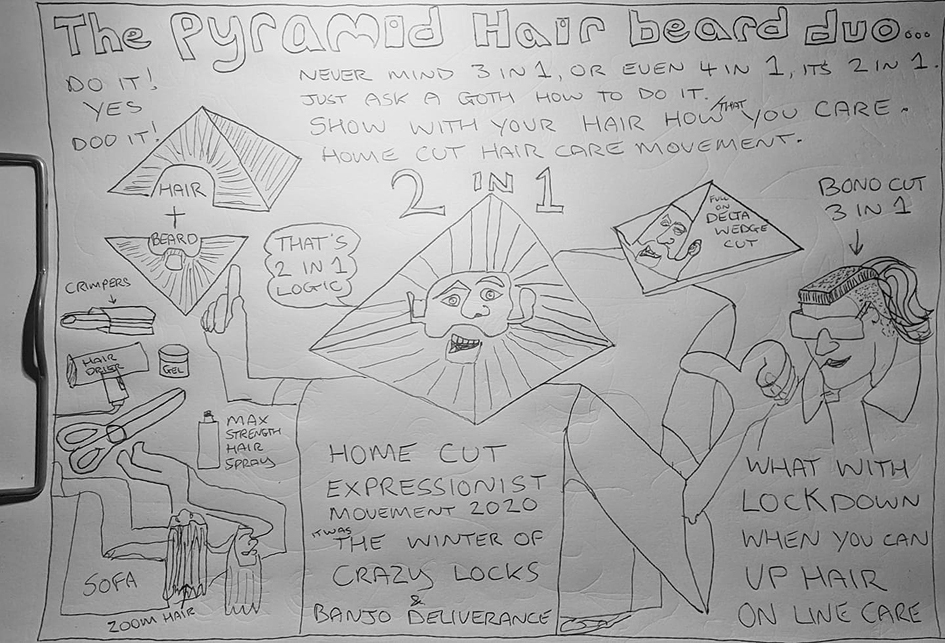 The Pyramid Hair beard duo...
DO IT!
YES
DOO IT!
NEVER MIND 3 IN 1, OR EVEN 4 IN 1, ITS 2 IN 1.
JUST ASK A GOTH HOW TO DO IT.
SHOW WITH YOUR HAIR HOW THAT YOU CARE.
HOME CUT HAIR CARE MOVEMENT.
2 IN 1
HAIR
+
BEARD
THAT'S
2 IN 1
LOGIC
FULL
ON
DELTA
WEDGE
CUT
BONO CUT
3 IN 1
CRIMPERS
HAIR
DRIER
GEL
MAX
STRENGTH
HAIR
SPRAY
SOFA
ZOOM HAIR
HOME CUT
EXPRESSIONIST
MOVEMENT 2020
IT WAS
THE WINTER OF
CRAZY LOCKS
&
BANJO DELIVERANCE
WHAT WITH
LOCKDOWN
WHEN YOU CAN
UP HAIR
ON LINE CARE